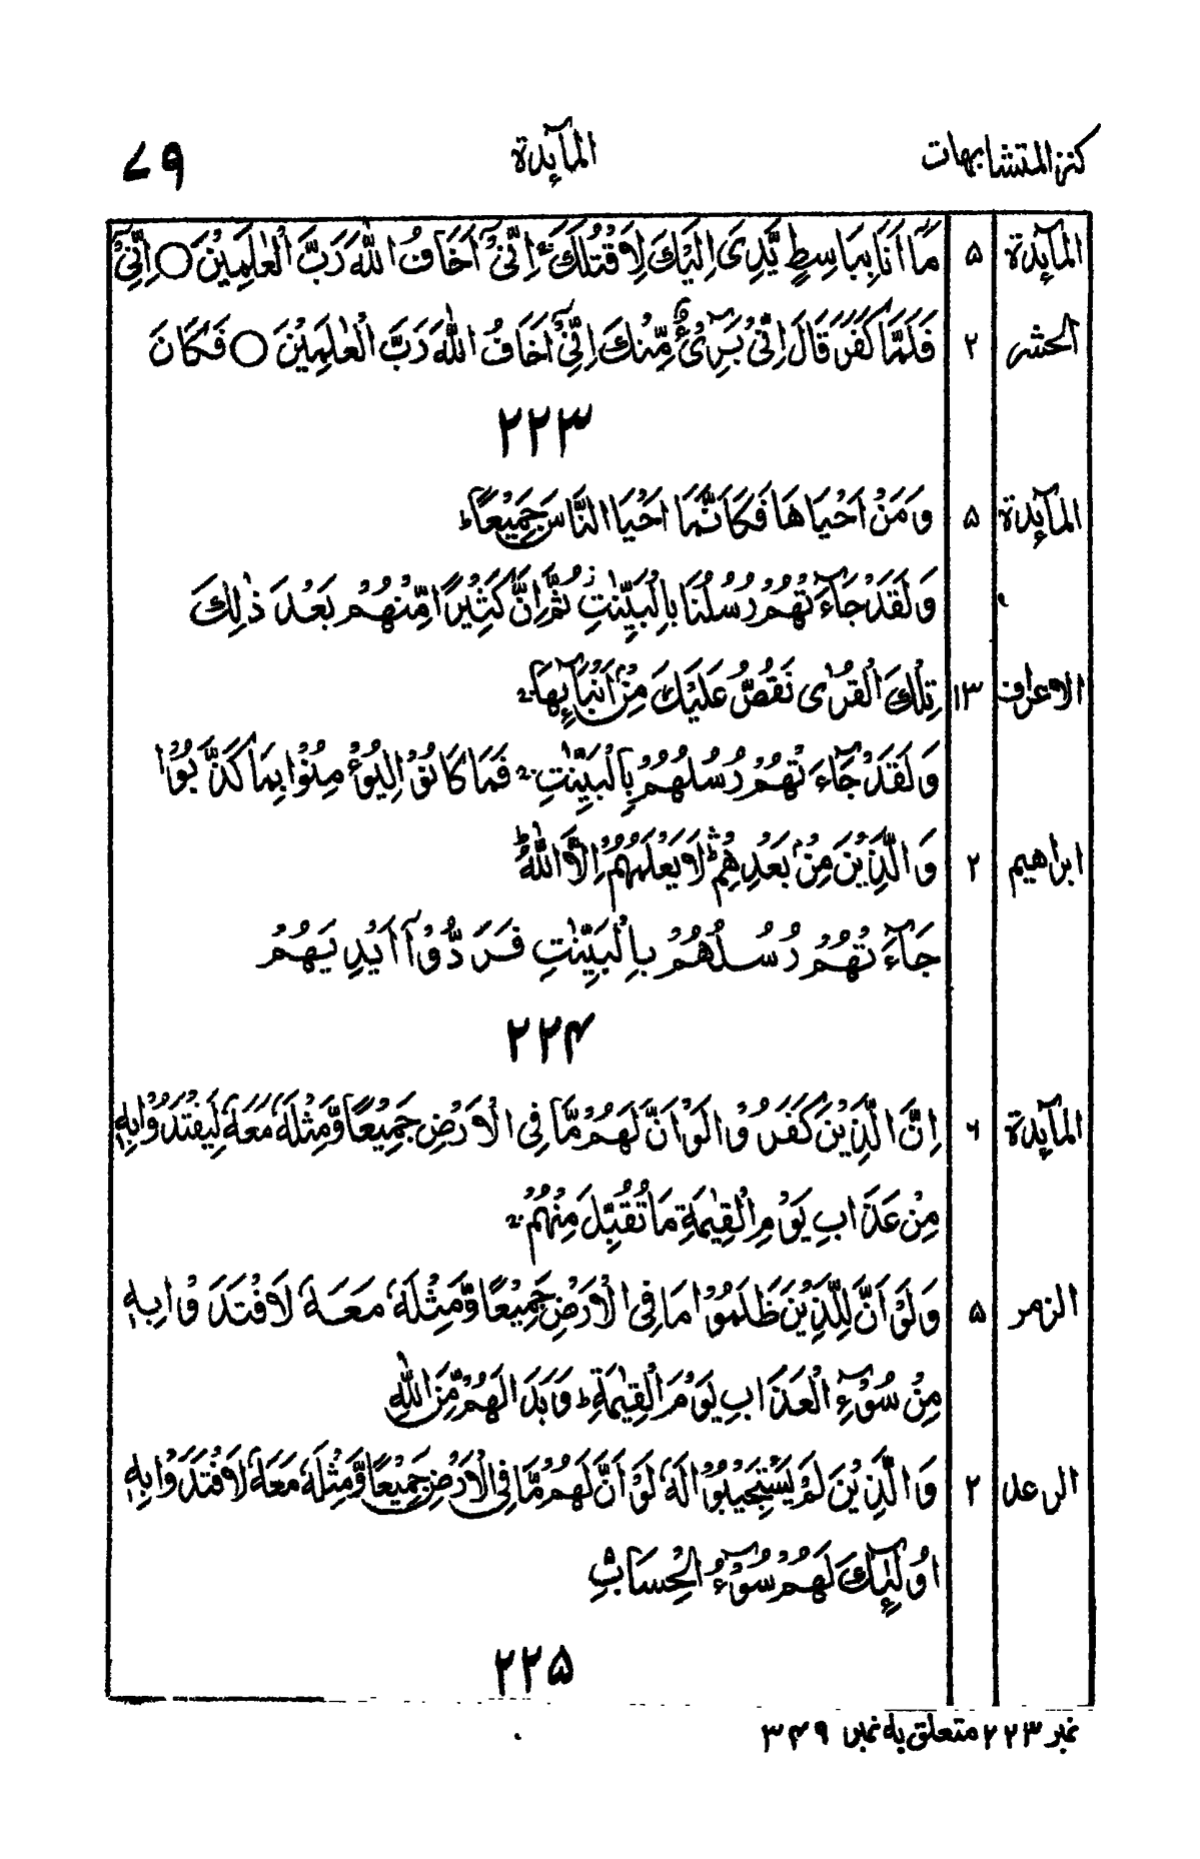 کنز المتشابهات المآئدة ۷۹
المآئدة ۵ مَآ اَنَا بِبَاسِطٍ یَّدِیَ اِلَیْكَ لِاَقْتُلَكَ ۚ اِنِّیْۤ اَخَافُ اللّٰهَ رَبَّ الْعٰلَمِیْنَ ○ اِنِّیْۤ
الحشر ۲ فَلَمَّا كَفَرَ قَالَ اِنِّیْ بَرِیْٓءٌ مِّنْكَ اِنِّیْۤ اَخَافُ اللّٰهَ رَبَّ الْعٰلَمِیْنَ ○ فَكَانَ
۲۲۳
المآئدة ۵ وَمَنْ اَحْیَاهَا فَكَاَنَّمَاۤ اَحْیَا النَّاسَ جَمِیْعًا ؕ
وَلَقَدْ جَآءَتْهُمْ رُسُلُنَا بِالْبَیِّنٰتِ ؗ ثُمَّ اِنَّ كَثِیْرًا مِّنْهُمْ بَعْدَ ذٰلِكَ
الاعراف ۱۳ تِلْكَ الْقُرٰی نَقُصُّ عَلَیْكَ مِنْ اَنْۢبَآىِٕهَا ۚ
وَلَقَدْ جَآءَتْهُمْ رُسُلُهُمْ بِالْبَیِّنٰتِ ۚ فَمَا كَانُوْا لِیُؤْمِنُوْا بِمَا كَذَّبُوْا
ابراهیم ۲ وَالَّذِیْنَ مِنْۢ بَعْدِهِمْ ۛؕ لَا یَعْلَمُهُمْ اِلَّا اللّٰهُ ؕ
جَآءَتْهُمْ رُسُلُهُمْ بِالْبَیِّنٰتِ فَرَدُّوْۤا اَیْدِیَهُمْ
۲۲۴
المآئدة ۶ اِنَّ الَّذِیْنَ كَفَرُوْا لَوْ اَنَّ لَهُمْ مَّا فِی الْاَرْضِ جَمِیْعًا وَّمِثْلَهٗ مَعَهٗ لِیَفْتَدُوْا بِهٖ
مِنْ عَذَابِ یَوْمِ الْقِیٰمَةِ مَا تُقُبِّلَ مِنْهُمْ ۚ
الزمر ۵ وَلَوْ اَنَّ لِلَّذِیْنَ ظَلَمُوْا مَا فِی الْاَرْضِ جَمِیْعًا وَّمِثْلَهٗ مَعَهٗ لَافْتَدَوْا بِهٖ
مِنْ سُوْٓءِ الْعَذَابِ یَوْمَ الْقِیٰمَةِ ؕ وَبَدَا لَهُمْ مِّنَ اللّٰهِ
الرعد ۲ وَالَّذِیْنَ لَمْ یَسْتَجِیْبُوْا لَهٗ لَوْ اَنَّ لَهُمْ مَّا فِی الْاَرْضِ جَمِیْعًا وَّمِثْلَهٗ مَعَهٗ لَافْتَدَوْا بِهٖ
اُولٰٓىِٕكَ لَهُمْ سُوْٓءُ الْحِسَابِ ۙ۬
۲۲۵
نمبر ۲۲۳ متعلق به نمبر ۳۴۹